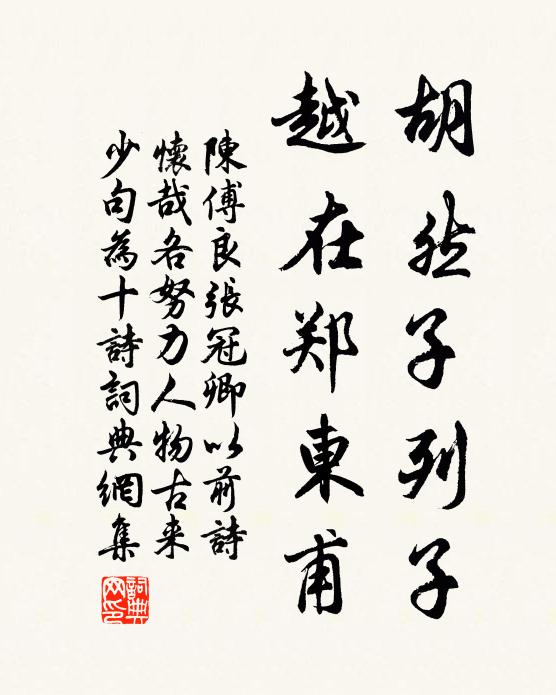 胡然子列子
越在郑東甫
陳傅良張冠卿以前詩
懷哉各努力人物古来
少句為十詩詞典網集
詞典网印